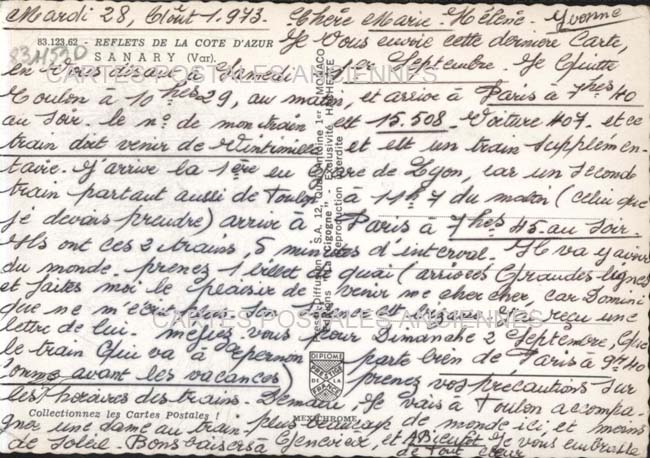 Mardi 28, Août 1.973. Chère Marie-Hélène - Yvonne
83.123.62 - REFLETS DE LA COTE D'AZUR
SANARY (Var).
Je Vous envoie cette dernière Carte,
en Vous disant à Samedi 1er Septembre. Je Quitte
Toulon à 10 hes 29, au matin, et arrive à Paris à 7 hes 40
au soir. le no. de mon train est 15.508. Voiture 407. et ce
train doit venir de Vintimille et est un train supplémen-
taire. J'arrive la 1ère en Gare de Lyon, car un second
train partant aussi de Toulon à 11h.7 du matin (celui que
je devais prendre) arrive à Paris à 7 hes 45 au Soir.
Ils ont ces 2 trains, 5 minutes d'interval. Il va y avoir
du monde. prenez 1 billet de quai (arrivées Grandes lignes
et faites moi le plaisir de venir me chercher, car Domini
que ne m'écrit plus. reçu une
lettre de lui. méfiez vous pour Dimanche 2 Septembre, Que
le train Qui va à Epernon parte bien de Paris à 9h40
(comme avant les vacances) prenez vos précautions sur
les horaires des trains. Demain, Je vais à Toulon accompa-
gner une dame au train. plus beaucoup de monde ici et moins
de Soleil. Bons baisers à Geneviève, et à Bientôt Je vous embrasse
de tout cœur
CARTES POSTALES ANCIENNES
CARTES POSTALES ANCIENNES
DIPLOME
PRESTIGE
DE LA
FRANCE
MEXICHROME
Collectionnez les Cartes Postales !
"Cigogne" - Exclusivité HACHETTE
Reproduction interdite